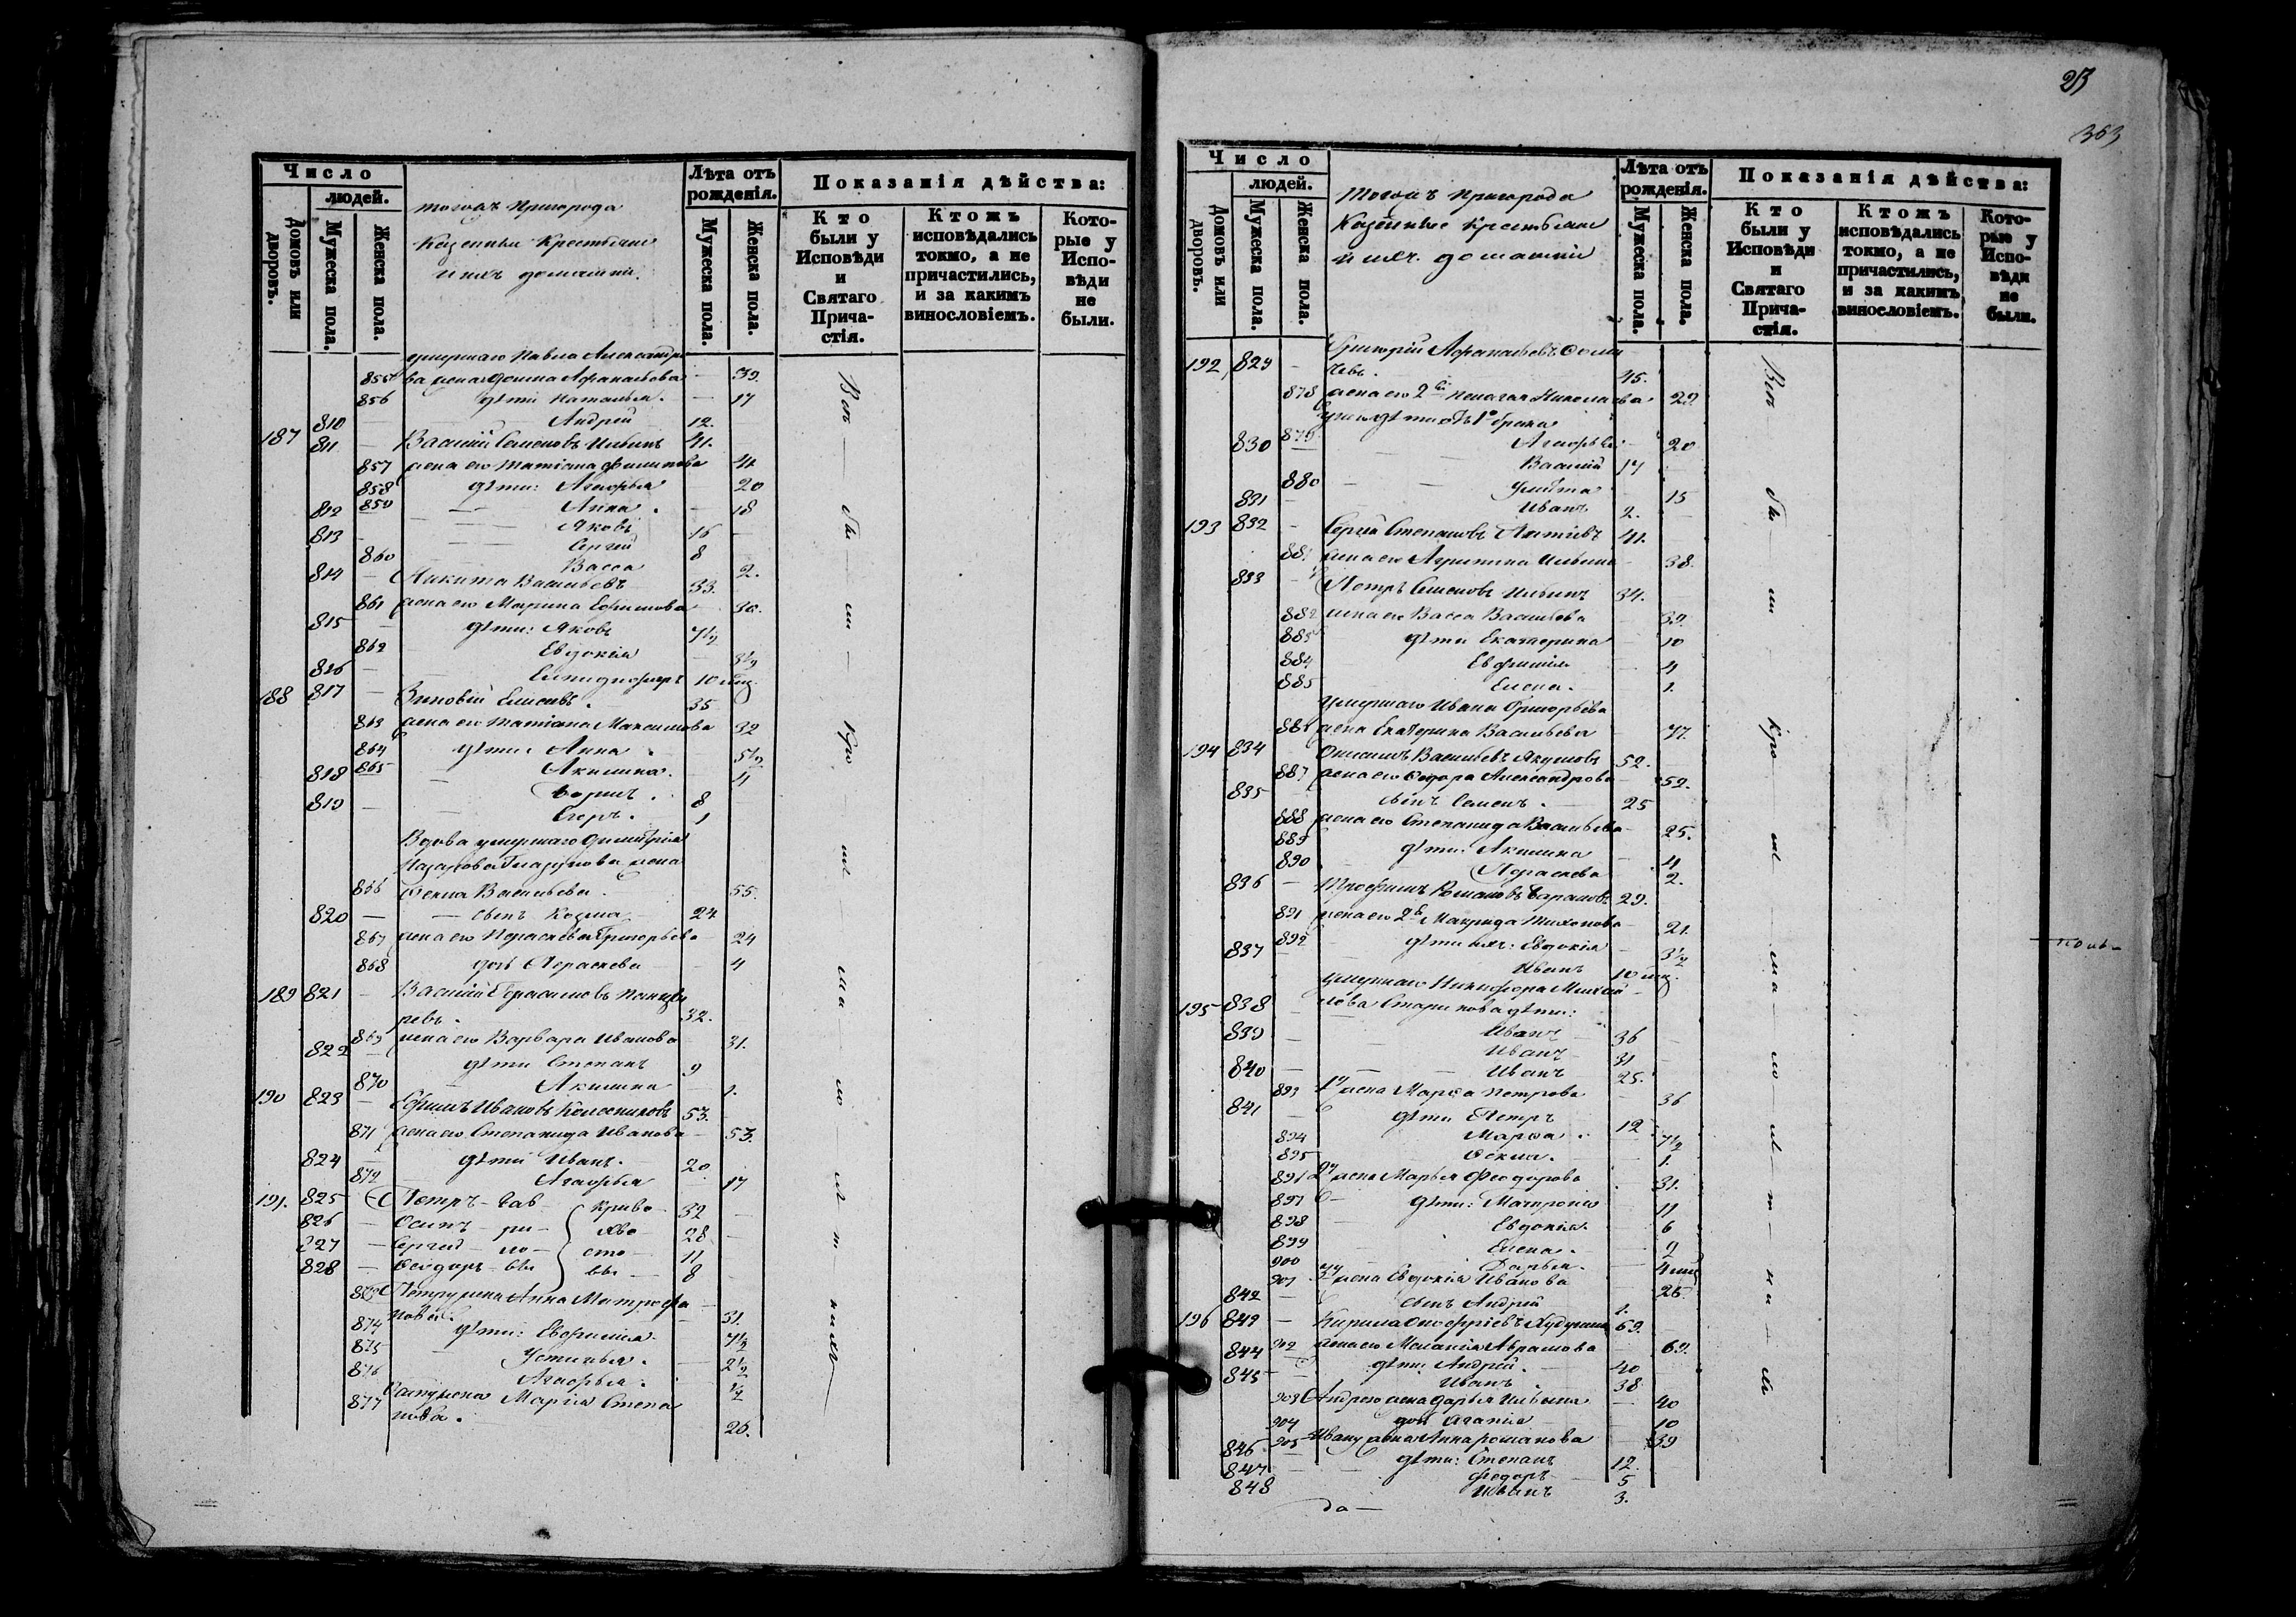 Число
людей.
Домовъ или дворовъ.
Мужеска пола.
Женска пола.
тогожъ Пригорода
Казенныя Крестьяне
и ихъ домашнія.
Лѣта отъ рожденія.
Мужеска пола.
Женска пола.
Показанія дѣйства:
Кто были у Исповѣди и Святаго Причастія.
Ктожъ исповѣдались токмо, а не причастились, и за какимъ винословіемъ.
Которые у Исповѣди не были.
умершаго Павла Александро
855 ва жена Афанасьева — 39.
856 дѣти Наталья — 17
810 Андрей 12.
187 811 — Василій Семеновъ Ильинъ 41.
857 жена его Татіана Филипова 41
858 дѣти: Агафья — 20
859 Анна — 18
812 Яковъ 16 —
813 Сергей 8
860 Васса 2.
814 — Никита Васильевъ 33.
861 жена его Марина Ефимова 30.
815 — дѣти: Яковъ 7½
862 Евдокія 3½
816 — 10 мѣс.
188 817 — Зиновій 35
863 жена его Татіана Максимова 32
864 дѣти: Анна 5½
865 Акилина 4
818 Борисъ 8
819 — Егоръ 1
Вдова умершаго Димитрія
Назарова жена
866 Фекла Васильева 55.
820 — сынъ Козма 24
867 жена его Параскева Григорьева 24
868 дочь Параскева 4
189 821 — Василій Герасимовъ
ревъ. 32.
869 жена его Варвара Иванова 31.
822 — дѣти Степанъ 9
870 Акилина 1.
190 823 — Ефимъ Ивановъ Колесниковъ 53.
871 жена его Степанида Иванова — 53.
824 — дѣти Иванъ 20.
872 Агафья 17
191. 825 — Петръ — Гав — Криво — 32
826 — Осипъ — ри — хво — 28
827 — Сергей — ло — сто — 11
828 — Феодоръ — вы — вы — 8
873 Петру жена Анна Митрофа
нова. 31.
874 дѣти: Евфимія 7½
875 Устинья 2½
876 Агафья ½
877 Осипу жена Марія Степа
нова. 26.
Всѣ — Па — ши — Кро — мѣ — ма — ло — лѣ — т — нихъ
23
363
Число
людей.
Домовъ или дворовъ.
Мужеска пола.
Женска пола.
Тогожъ Пригорода
Казенные Крестьяне
и ихъ домашніи
Лѣта отъ рожденія.
Мужеска пола.
Женска пола.
Показанія дѣйства:
Кто были у Исповѣди и Святаго Причастія.
Ктожъ исповѣдались токмо, а не причастились, и за какимъ винословіемъ.
Которые у Исповѣди не были.
192 829 — Григорій Афанасьевъ
чевъ. 45.
878 жена его 2я Пелагея Николаева 22
у нихъ дѣти отъ 1го брака
879 Агафья 20
830 Василій 17
880 Улита 15
831 Иванъ 2.
193 832 — Сергей Степановъ 41.
881 жена его Агрипина Ильина 38.
833 — Петръ Семеновъ Ильинъ 34.
882 жена его Васса Васильева 32
883 дѣти Екатерина 10
884 Евфимія 4
885 Елена. 1.
умершаго Ивана Григорьева
886 жена Екатерина Васильева 77.
194 834 — Онисимъ Васильевъ Якуповъ 52.
887 жена его Федора Александрова 52.
835 сынъ Семенъ. 25
888 жена его Степанида Васильева 25.
889 дѣти: Акилина 4
890 Параскева 2.
836 — Трофимъ Романовъ Барановъ 29.
891 жена его 2я Макрида Тихонова 21.
892 дѣти ихъ: Евдокія 3½
837 — Иванъ 10 мѣс.
умершаго Никифора Михай
195 838 — лова Старикова дѣти:
Иванъ 36
839 — Иванъ 31
840 — Иванъ 25.
893 1у жена Марфа Петрова 36
841 — дѣти Петръ 12
894 Марфа. 7½
895 Фекла. 1.
896 2у жена Марья Феодорова 31.
897 дѣти: Матрона 11
898 Евдокія 6
899 Елена. 2
900 Дарья. 4 мѣс
901 3у жена Евдокія Иванова 26.
842 — сынъ Андрей 1.
196 843 — Кирила Онофріевъ 69.
902 жена его Меланія Абрамова 69.
844 — дѣти: Андрей. 40
845 — Иванъ. 38
903 Андрею жена Дарья Ильина 40
904 дочь Агапія 10
905 Ивану жена Анна Романова 39
846 дѣти: Степанъ 12.
847 Федоръ 5
848 Иванъ 3.
да —
Всѣ — Па — ши — Кро — мѣ — ма — ло — лѣ — т — ни — хъ